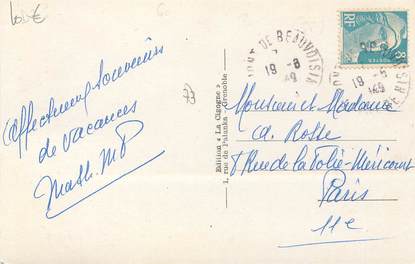 10€
Affectueux souvenirs
de vacances
Math. MP
Edition « La Cigogne »
1, rue de Palanka - Grenoble
PONT DE BEAUVOISIN
19-8
49
RF
POSTES
Monsieur et Madame
A. Rolle
Rue de la Folie-Méricourt
Paris
11e